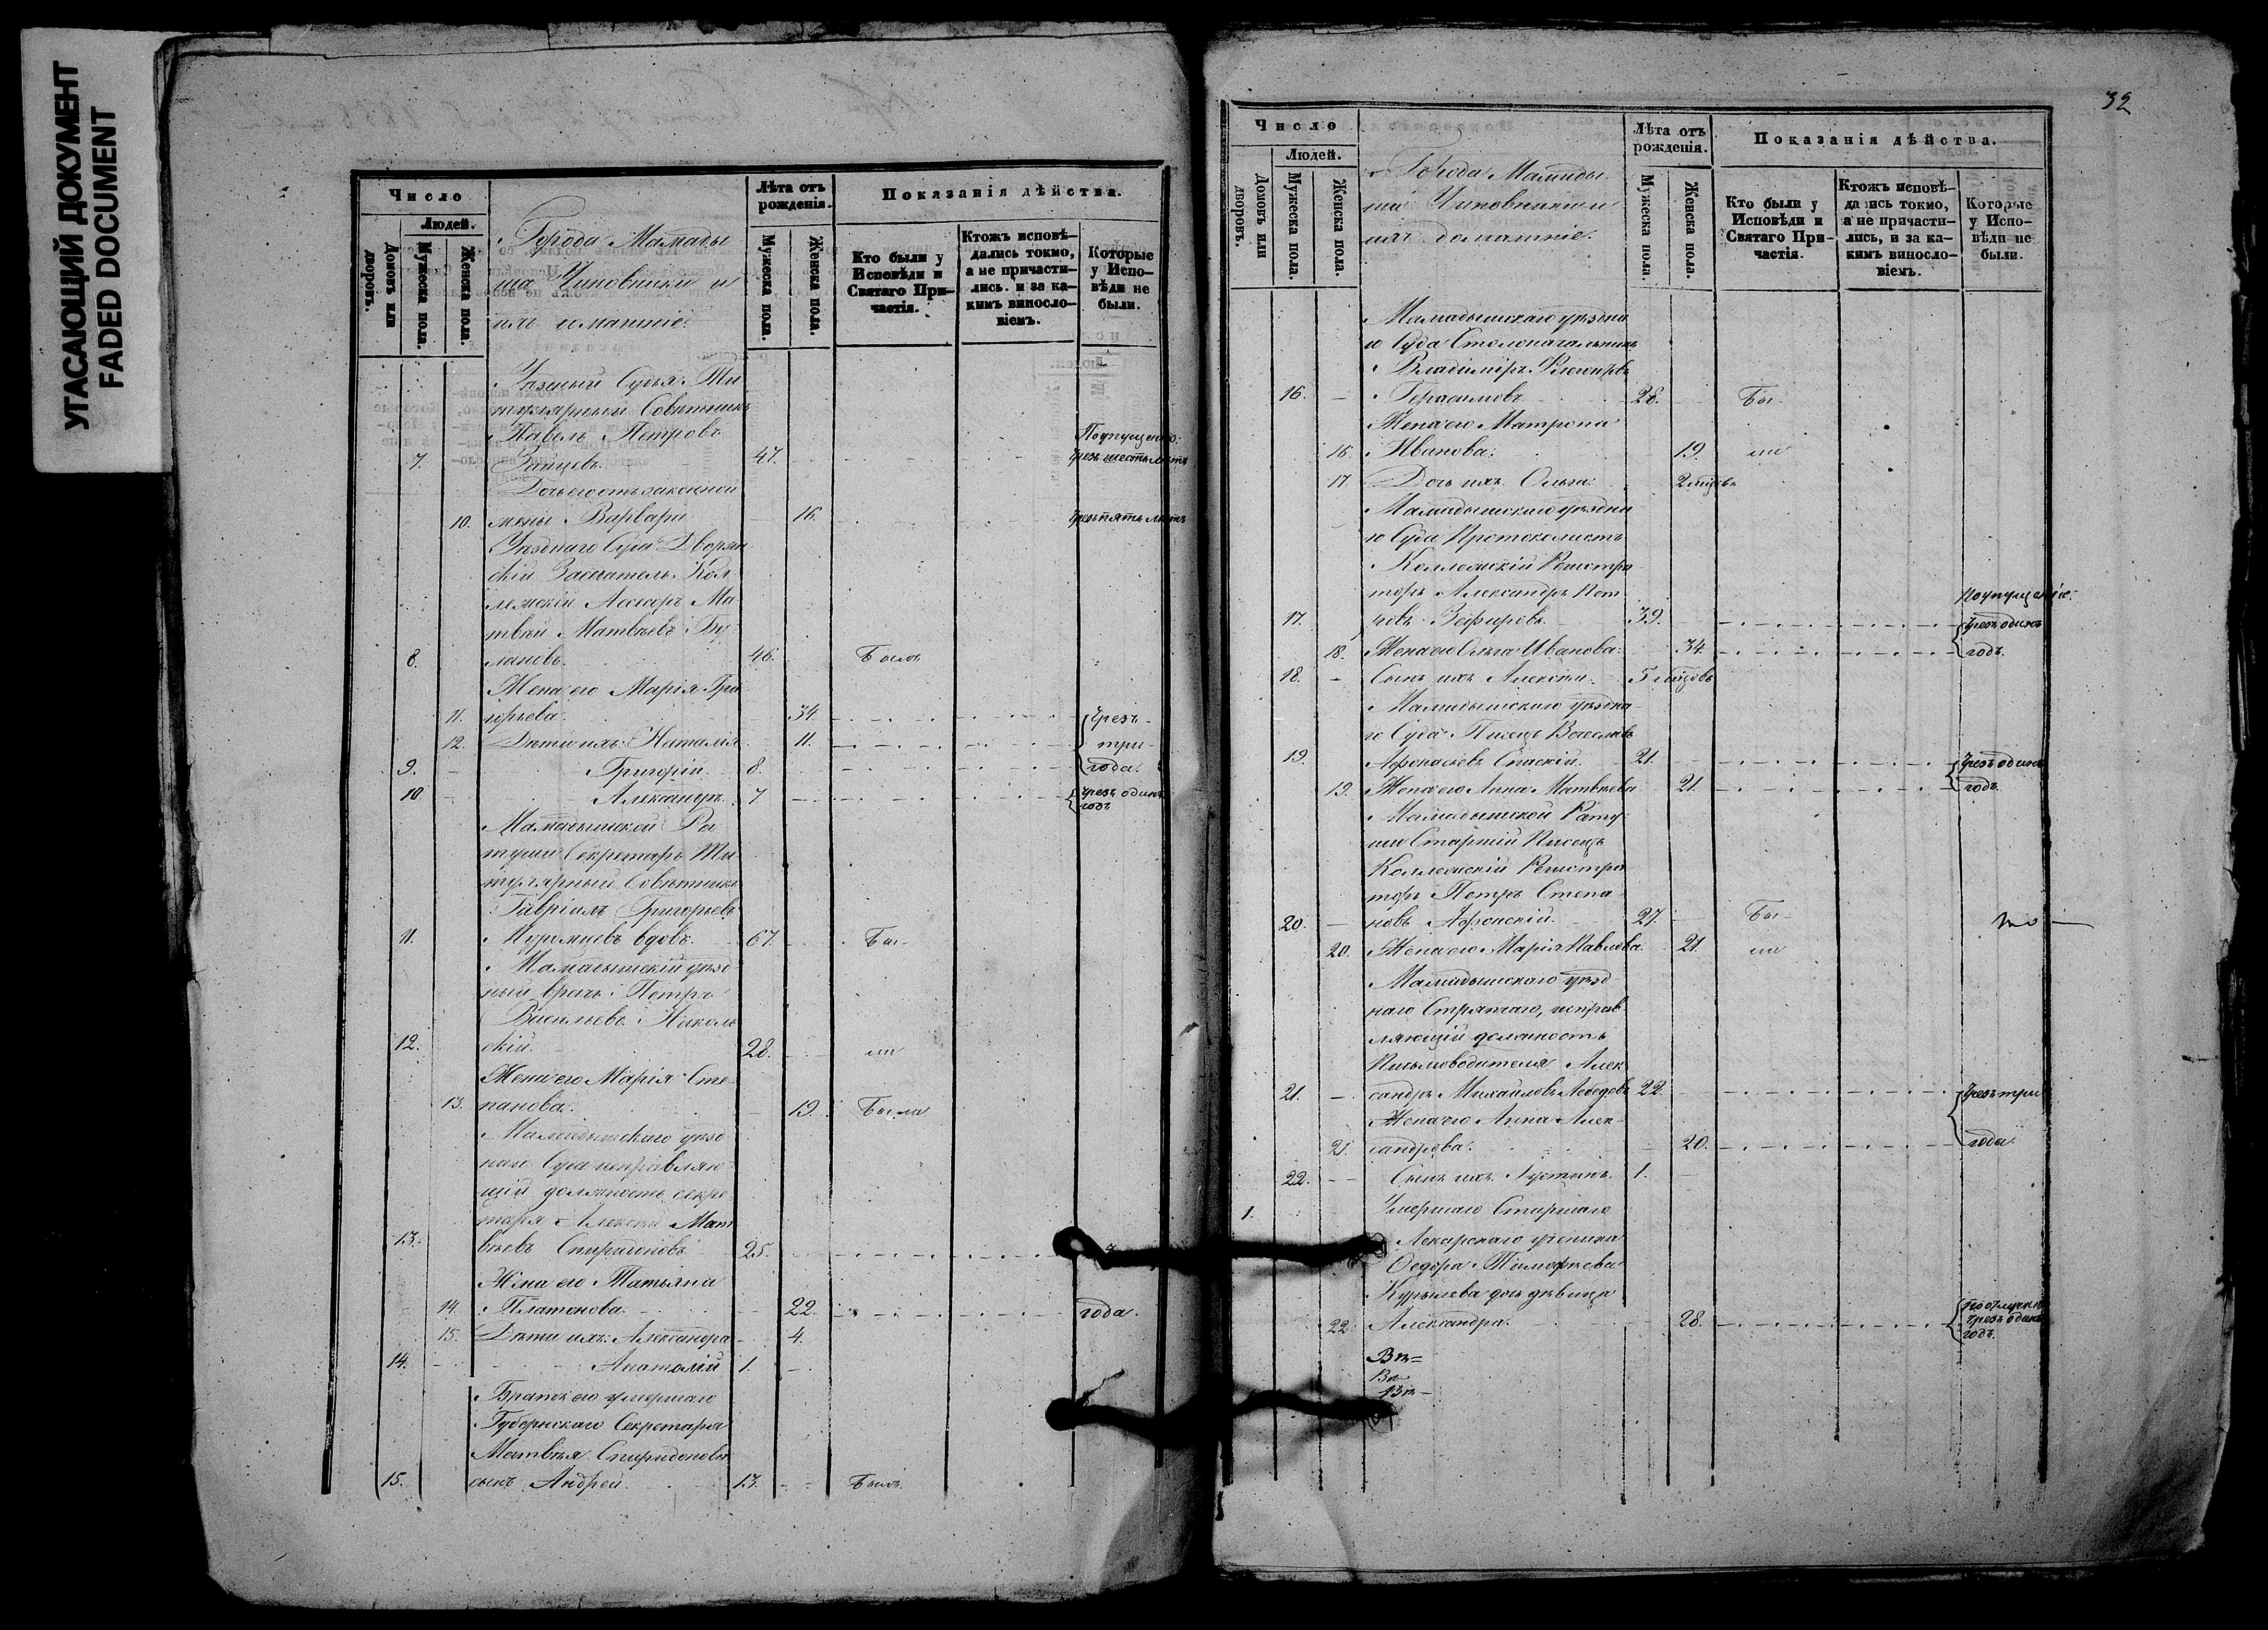 УГАСАЮЩИЙ ДОКУМЕНТ
FADED DOCUMENT
Число
Людей.
Домовъ или дворовъ.
Мужеска пола.
Женска пола.
Города Мамады
ша Чиновники и
ихъ домашніе.
Лѣта отъ рожденія.
Мужеска пола.
Женска пола.
Показанія дѣйства.
Кто были у Исповѣди и Святаго Причастія.
Ктожъ исповѣдались токмо, а не причастились, и за какимъ винословіемъ.
Которые у Исповѣди не были.
Уѣздный Судья Ти
тулярный Совѣтникъ
Павелъ Петровъ
7. Зайцевъ. 47.
чрезъ шесть лѣтъ
Дочь его отъ законной
10. жены Варвара 16. чрезъ пять лѣтъ
Уѣзднаго Суда Дворян
скій Засѣдатель Кол
лежскій Ассесоръ Ма
твѣй Матвѣевъ Бу
8. лановъ. 46. Былъ
Жена его Марія Гри
11. горьева. 34. чрезъ
12. Дѣти ихъ: Наталія 11. три
9. Григорій 8. года.
10 Александръ 7 чрезъ одинъ годъ
Мамадышской Ра
туши Секретарь Ти
тулярный Совѣтникъ
Гавріилъ Григорьевъ
11. вдовъ. 67. Бы-
Мамадышскій уѣзд
ный врачъ Петръ
Васильевъ Николь
12. скій. 28. ли
Жена его Марія Сте
13. панова. 19. Была
Мамадышскаго уѣзд
наго Суда исправляю
щій должность секре
таря Алексѣй Мат
13. вѣевъ Спиридоновъ 25.
Жена его Татьяна
14. Платонова. 22. года.
15. Дѣти ихъ: Александра 4.
14. Анатолій 1.
Братъ его умершаго
Губернскаго Секретаря
Матвѣя Спиридонова
15. сынъ Андрей. 13. Былъ
32
Число
Людей.
Домовъ или дворовъ.
Мужеска пола.
Женска пола.
Города Мамады
ша Чиновники и
ихъ домашніе.
Лѣта отъ рожденія.
Мужеска пола
Женска пола.
Показанія дѣйства.
Кто были у Исповѣди и Святаго Причастія.
Ктожъ исповѣдались токмо, а не причастились, и за какимъ винословіемъ.
Которые у Исповѣди не были.
Мамадышскаго уѣздна
го Суда Столоначальникъ
Владиміръ
16. Герасимовъ 28. Бы-
Жена его Матрона
16 Иванова. 19. ли
17. Дочь ихъ Ольга 2 мѣсцъ
Мамадышскаго уѣздна
го Суда Протоколистъ
Коллежскій Регистра
торъ Александръ Пет
17. ровъ Зефировъ 39. чрезъ одинъ
18. Жена его Ольга Иванова. 34. годъ.
18. Сынъ ихъ Алексѣй 5 мѣсцовъ
Мамадышскаго уѣздна
го Суда Писецъ
19. Афонасьевъ Спаскій. 21. чрезъ одинъ
19. Жена его Анна Матвѣева 21. годъ.
Мамадышской Рату
ши Старшій Писецъ
Коллежскій Регистра
торъ Петръ Степа
20. новъ Афонскій. 27. Бы-
20. Жена его Марія Павлова. 21. ли
Мамадышскаго уѣзд
наго Стряпчаго, исправ
ляющій должность
Письмоводителя Алек
21. сандръ Михайловъ Лебедевъ 22. чрезъ три
Жена его Анна Алек
21. сандрова. 20. года.
22. Сынъ ихъ 1.
1. Умершаго Старшаго
Лекарскаго ученика
Ѳедора Тимофеева
дочь дѣвица
22. Александра. 28. По отлучкѣ чрезъ одинъ годъ.